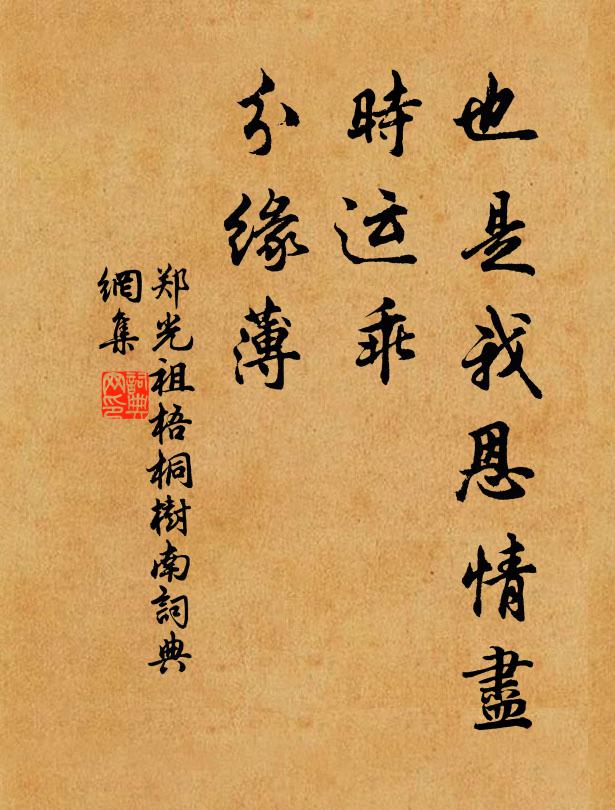 也是我恩情盡
時运乖
分緣薄
郑光祖梧桐樹南詞典
網集
詞典網印